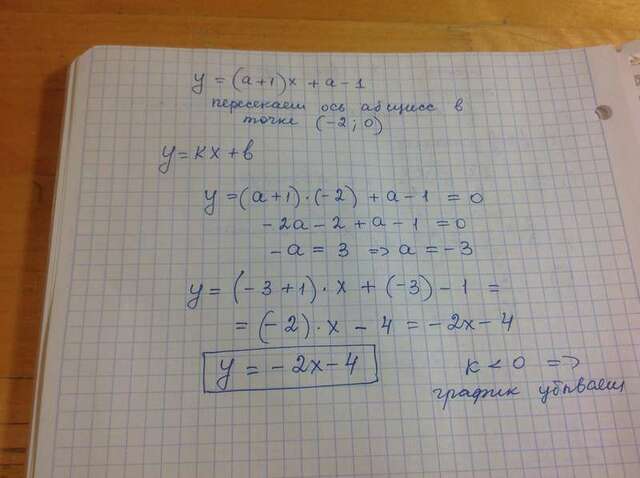 y = (a+1)x + a - 1
пересекает ось абцисс в
точке (-2; 0)
y = kx + b
y = (a+1)·(-2) + a - 1 = 0
-2a - 2 + a - 1 = 0
-a = 3 => a = -3
y = (-3+1)·x + (-3) - 1 =
= (-2)·x - 4 = -2x - 4
y = -2x - 4
k < 0 =>
график убывает